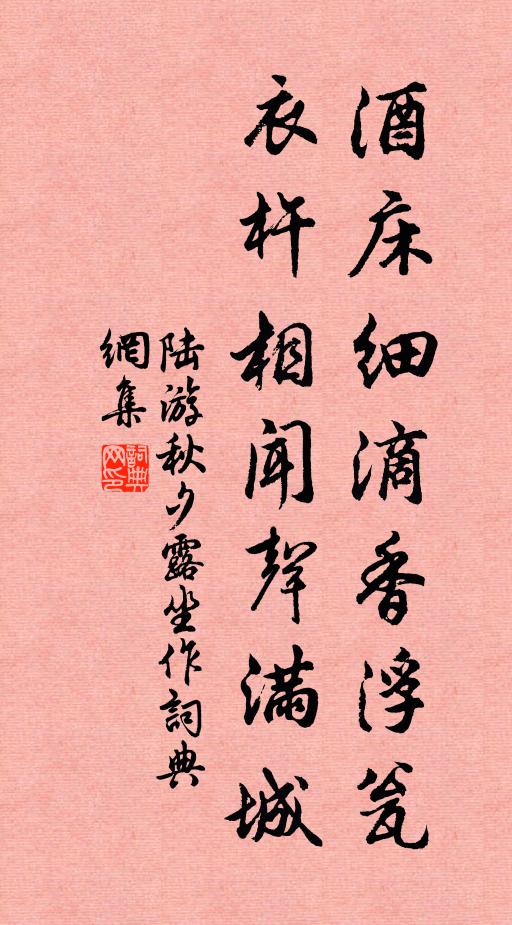 酒床细滴香浮瓮
衣杵相闻声满城
陆游秋夕露坐作词典
網集
詞典網印